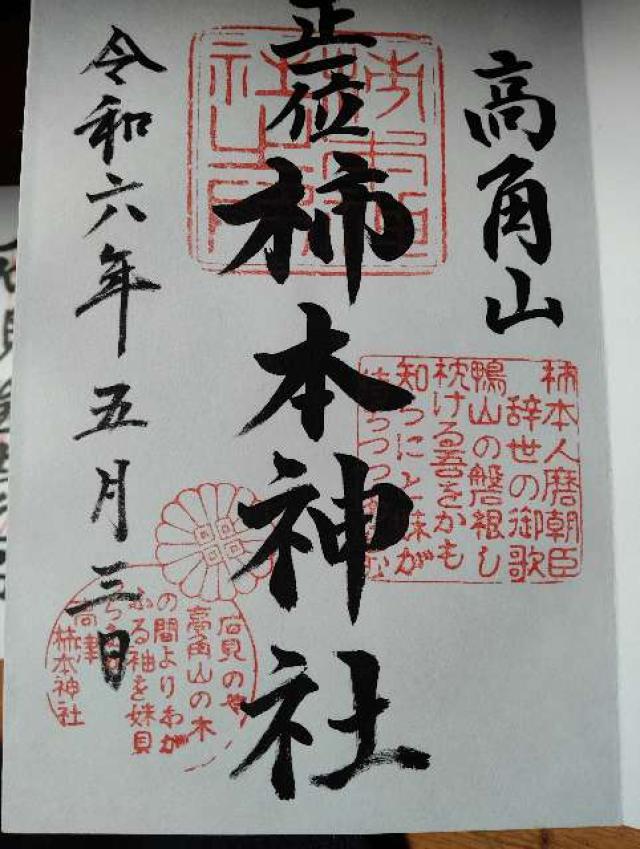 高角山
正一位
柿本神社
令和六年五月三日
柿本人麿朝臣
辞世の御歌
鴨山の磐根し
枕ける吾をかも
知らにと妹が
待ちつつ
石見のや
高角山の木
の間よりわが
ふる袖を妹見
つらむか
高津
柿本神社